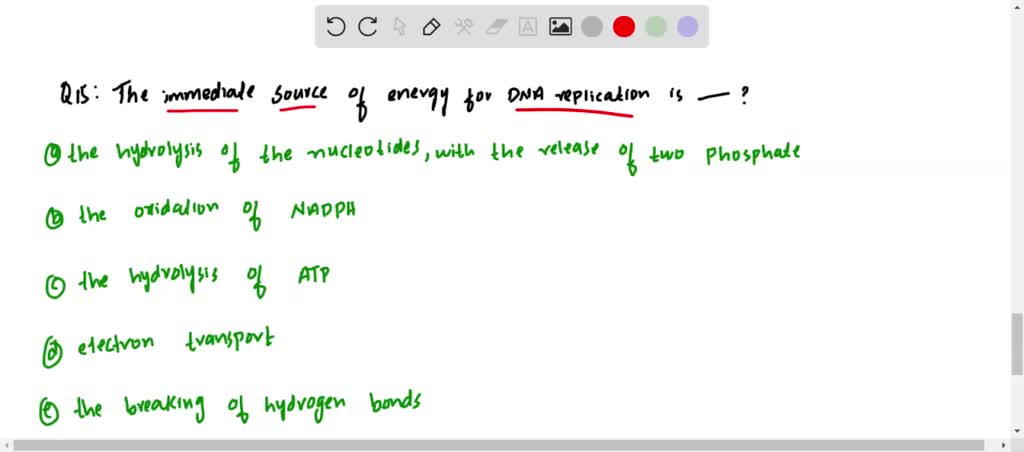 Q15: The immediate source of energy for DNA replication is — ?
ⓐ the hydrolysis of the nucleotides, with the release of two phosphate
ⓑ the oxidation of NADPH
ⓒ the hydrolysis of ATP
ⓓ electron transport
ⓔ the breaking of hydrogen bonds